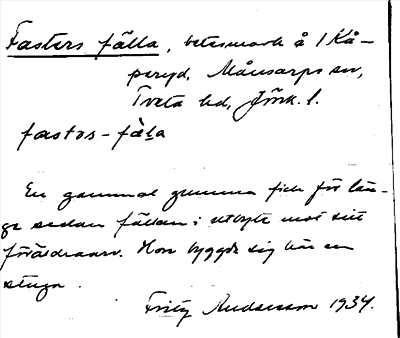 Fasters fälla, betesmark å 1 Kå-
peryd, Månsarps sn,
Tveta hd, Jönk. l.
fastos-fäla
En gammal gumma fick för län-
ge sedan fällan i utbyte mot sitt
föräldraarv. Hon byggde sig här en
stuga.
Fritz Andersson 1934.